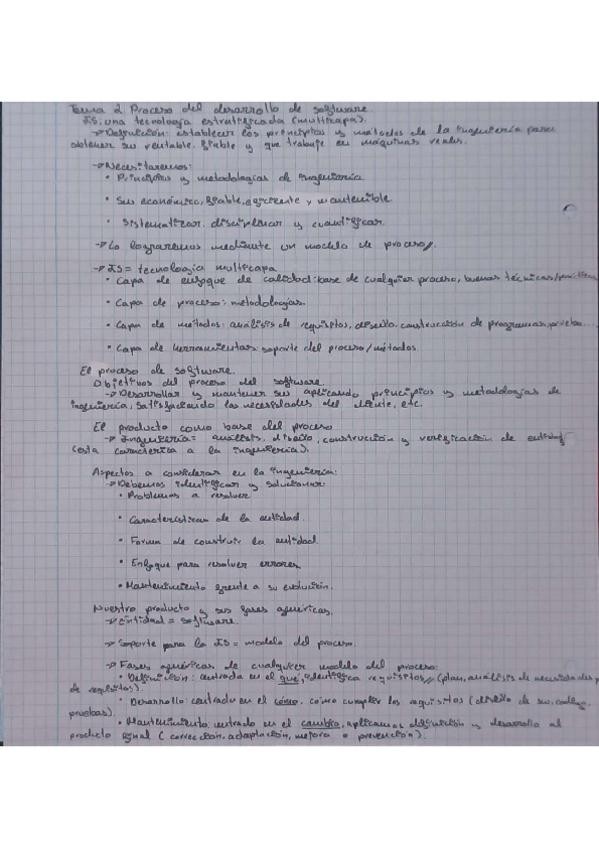 Tema 2 Proceso del desarrollo de software.
IS, una tecnología estratificada (multicapa).
→ Definición: establecer los principios y métodos de la ingeniería para
obtener sw rentable, fiable y que trabaje en máquinas reales.
→ Necesitaremos:
• Principios y metodologías de ingeniería
• Sw económico, fiable, eficiente y mantenible
• Sistematizar, disciplinar y cuantificar.
→ Lo lograremos mediante un modelo de proceso.
→ IS = tecnología multicapa
• Capa de enfoque de calidad: base de cualquier proceso, buenas técnicas/
• Capa de proceso: metodologías.
• Capa de métodos: análisis de requisitos, diseño, construcción de programas, pruebas...
• Capa de herramientas: soporte del proceso/métodos.
El proceso de software.
Objetivos del proceso del software.
→ Desarrollar y mantener sw aplicando principios y metodologías de
ingeniería, satisfaciendo las necesidades del cliente, etc.
El producto como base del proceso
→ Ingeniería = análisis, diseño, construcción y verificación de
(esta caracteriza a la ingeniería).
Aspectos a considerar en la ingeniería:
→ Debemos identificar y solucionar:
• Problemas a resolver
• Características de la entidad.
• Forma de construir la entidad.
• Enfoque para resolver errores
• Mantenimiento frente a su evolución.
Nuestro producto y sus fases genéricas.
→ Entidad = software.
→ Soporte para la IS = modelo del proceso.
→ Fases genéricas de cualquier modelo del proceso:
• Definición: centrada en el qué, identifica requisitos (plan, análisis de necesidades y
de requisitos).
• Desarrollo: centrado en el cómo, cómo cumplir los requisitos (diseño de sw,
pruebas).
• Mantenimiento, centrado en el cambio, aplicamos definición y desarrollo al
producto final (corrección, adaptación, mejora o prevención).